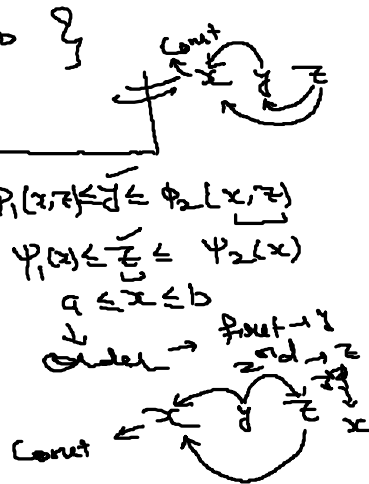 }
Const
x y z
φ₁(x,z) ≤ y ≤ φ₂(x,z)
ψ₁(x) ≤ z ≤ ψ₂(x)
a ≤ x ≤ b
↓
order → first → y
2nd → z
x
x y z
Const